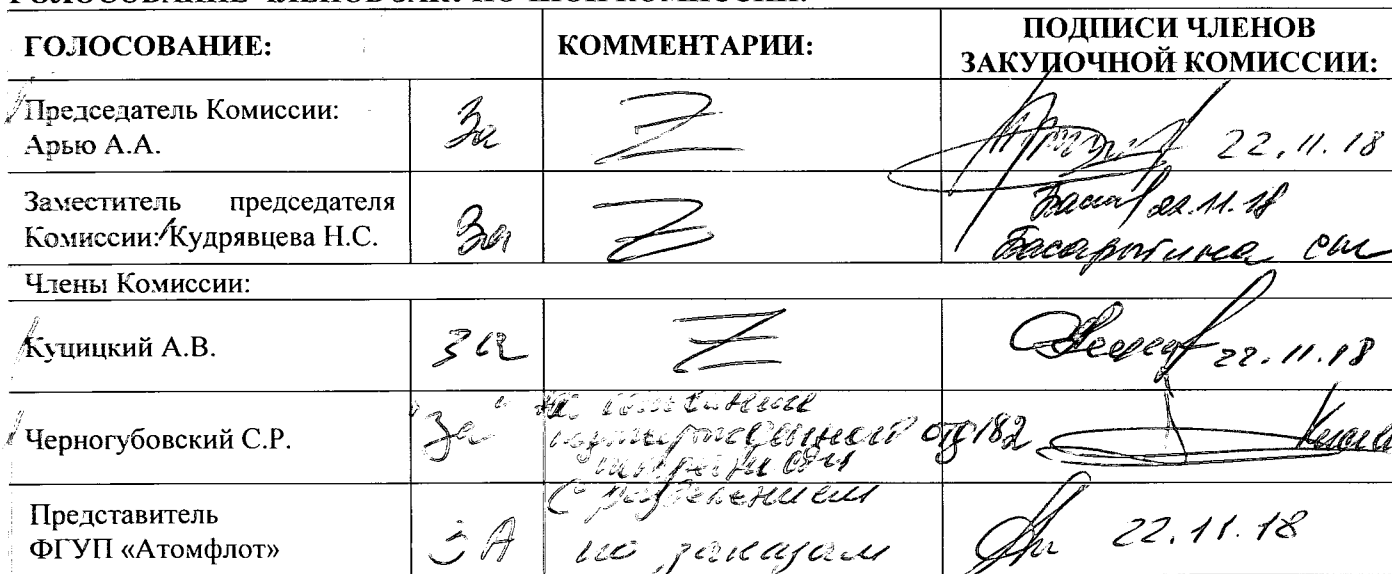 ГОЛОСОВАНИЕ ЧЛЕНОВ ЗАКУПОЧНОЙ КОМИССИИ:
ГОЛОСОВАНИЕ:
КОММЕНТАРИИ:
ПОДПИСИ ЧЛЕНОВ
ЗАКУПОЧНОЙ КОМИССИИ:
Председатель Комиссии:
Арью А.А.
За
Z
22.11.18
Заместитель председателя
Комиссии: Кудрявцева Н.С.
За
Z
22.11.18
Члены Комиссии:
Куцицкий А.В.
За
Z
22.11.18
Черногубовский С.Р.
"За"
отд 182
Представитель
ФГУП «Атомфлот»
ЗА
С разделением
по заказам
22.11.18